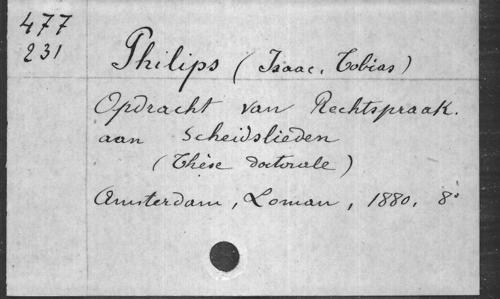 477
231
Philips (Isaac, Tobias)
Opdracht van Rechtspraak.
aan Scheidslieden
(Thèse doctorale)
Amsterdam, Loman, 1880, 8°